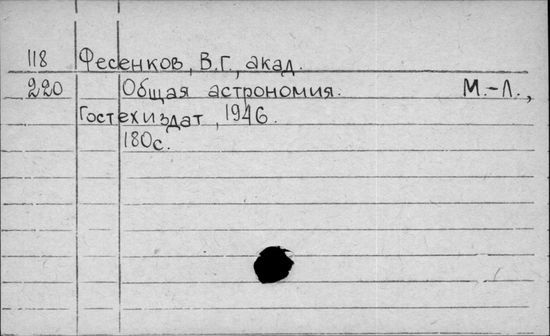 118 Фесенков, В.Г., акад.
220 Общая астрономия. М.-Л.,
Гостехиздат, 1946.
180с.